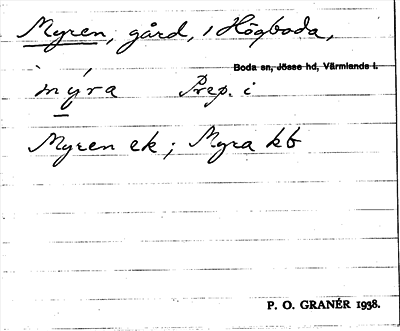 Myren, gård, i Högboda,
Boda sn, Jösse hd, Värmlands l.
`mýra Prep. i
Myren ek; Myra kb
P. O. GRANÉR 1938.